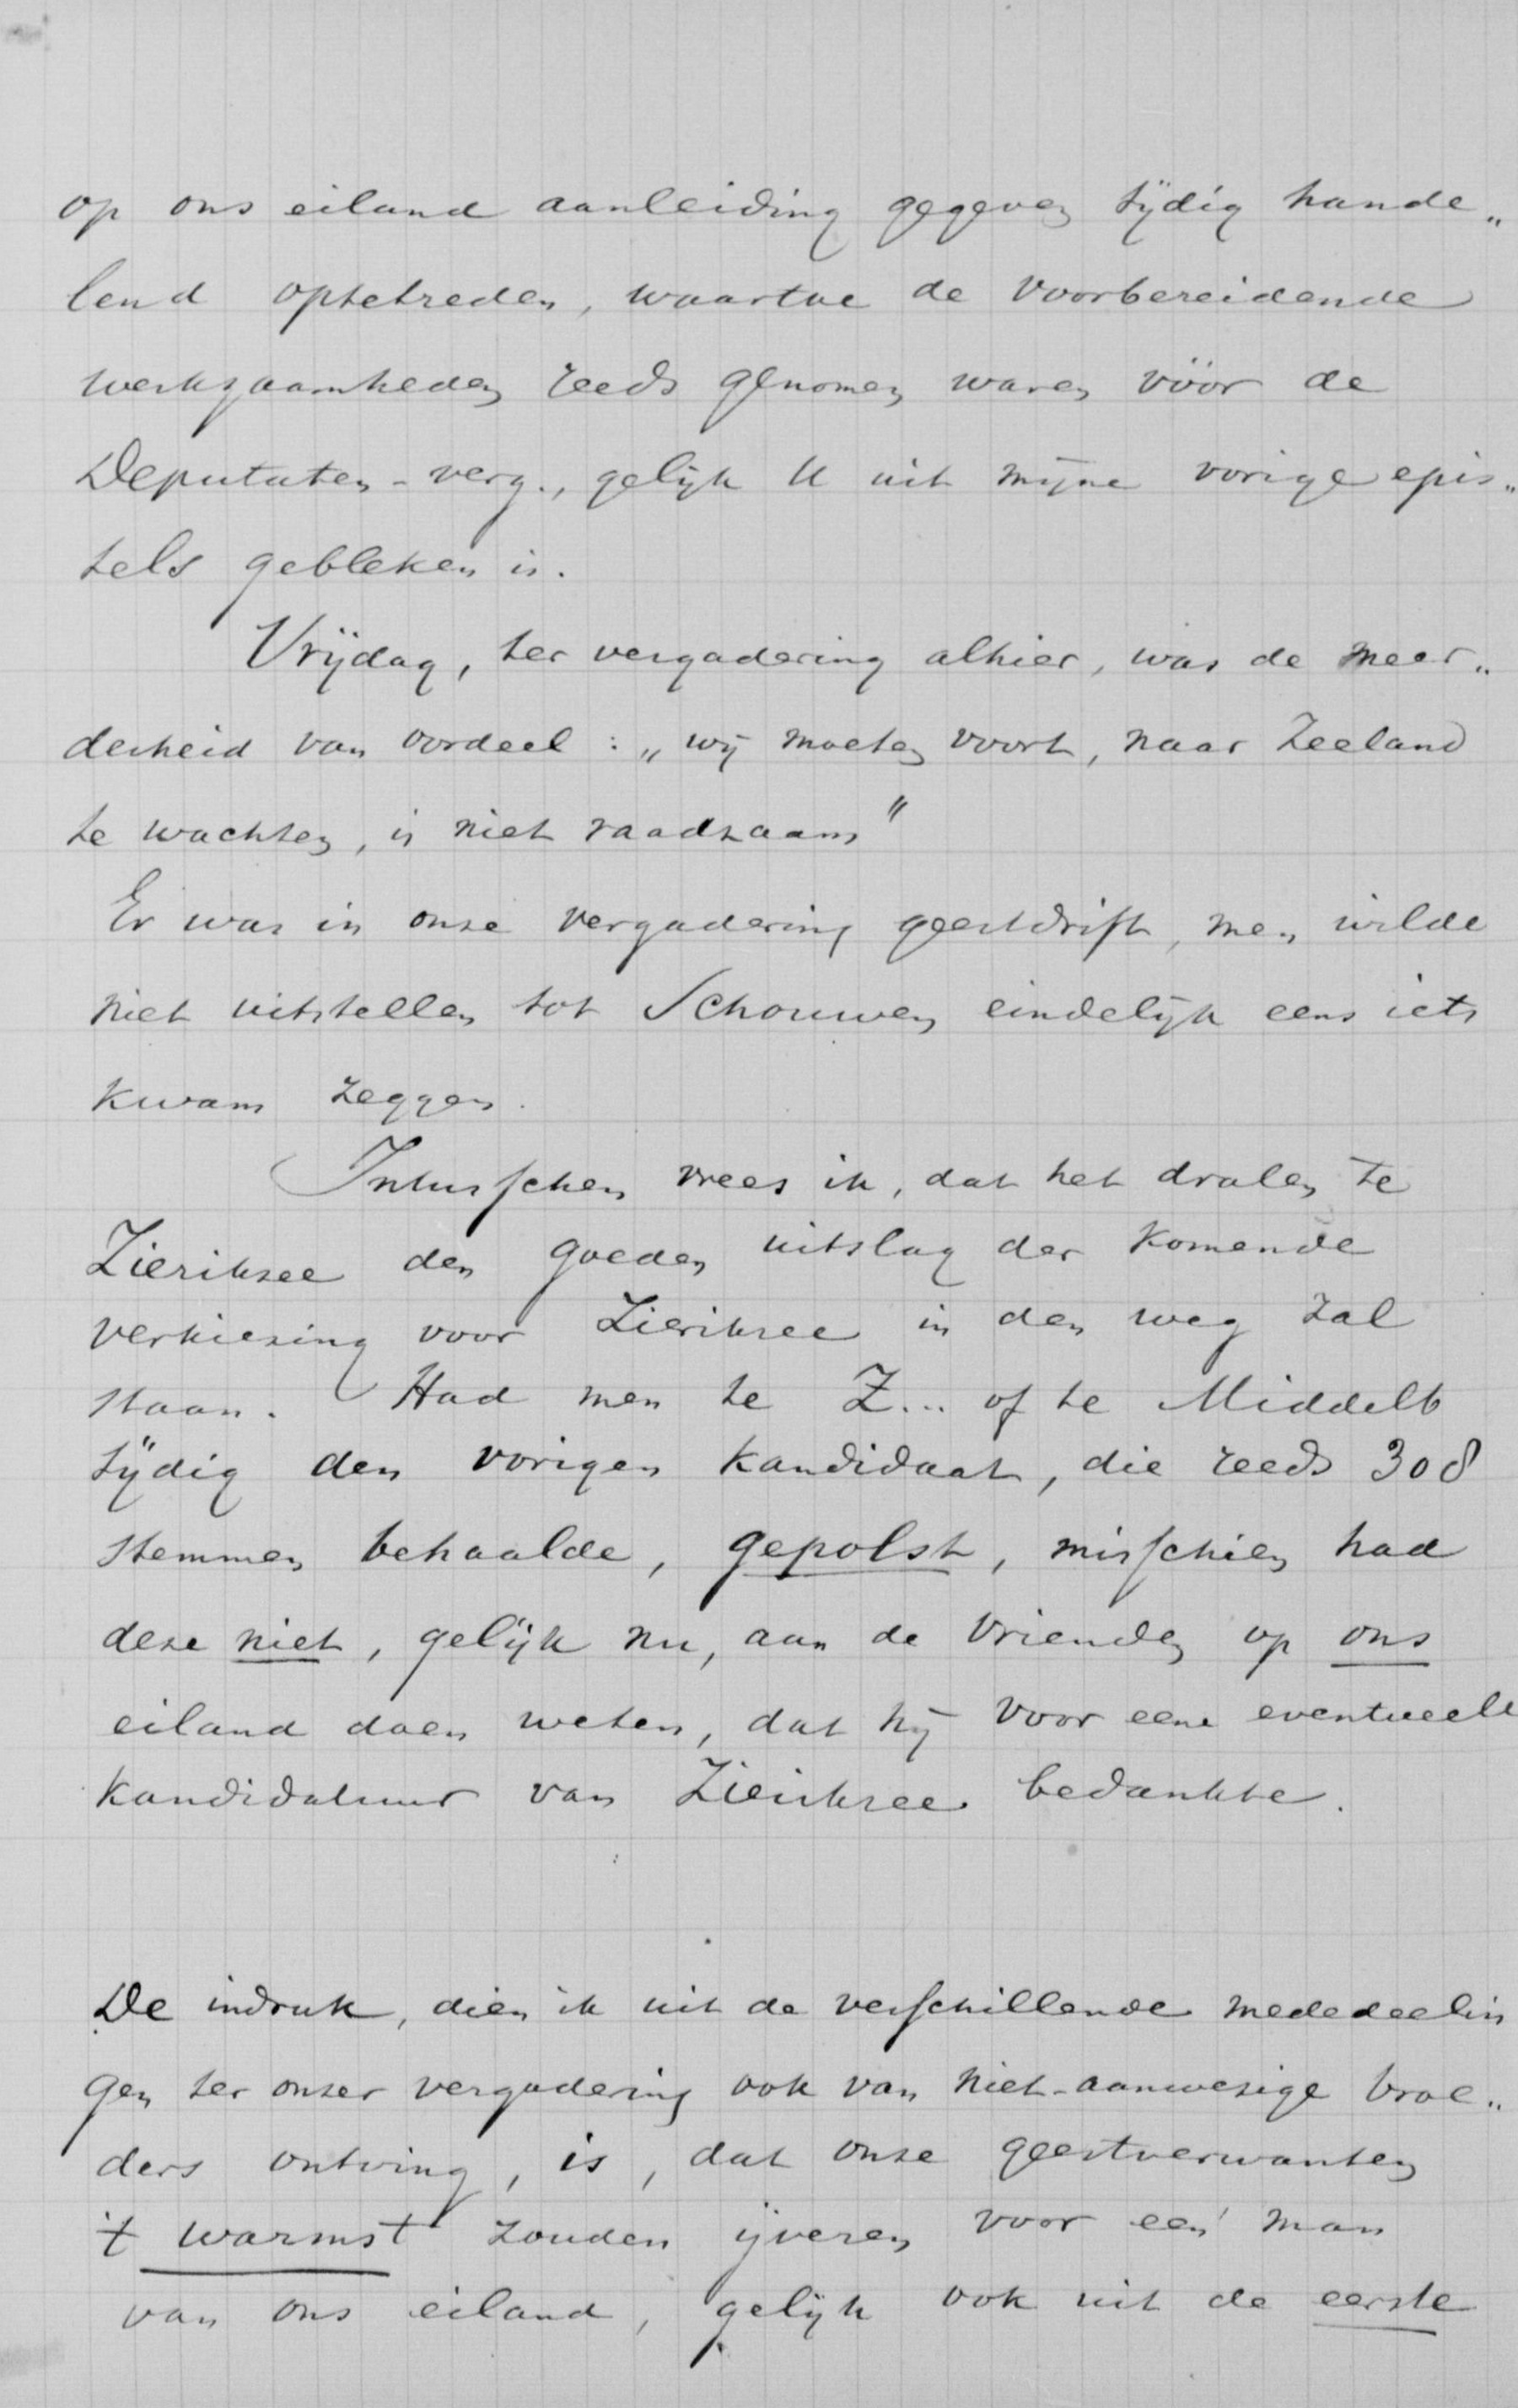 op ons eiland aanleiding gegeven tijdig hande„
lend optetreden, waartoe de voorbereidende
werkzaamheden reeds genomen waren vóór de
Deputaten-verg., gelijk U uit mijne vorige epis„
tels gebleken is.
Vrijdag, ter vergadering alhier, was de meer„
derheid van oordeel: „wij moeten voort, naar Zeeland
te wachten, is niet raadzaam"
Er was in onze vergadering geestdrift, men wilde
niet uitstellen tot Schouwen eindelijk eens iets
kwam zeggen.
Intusschen vrees ik, dat het dralen te
Zieriksee den goeden uitslag der komende
verkiezing voor Zieriksee in den weg zal
staan. Had men te Z... of te Middelb
tijdig den vorigen kandidaat, die reeds 308
stemmen behaalde, gepolst, misschien had
deze niet, gelijk nu, aan de vrienden op ons
eiland doen weten, dat hij voor eene eventueele
kandidatuur van Zieriksee bedankte.
De indruk, dien ik uit de verschillende mededeelin
gen ter onzer vergadering ook van niet-aanwezige broe„
ders ontving, is, dat onze geestverwanten
't warmst zouden ijveren voor een man
van ons eiland, gelijk ook uit de eerste